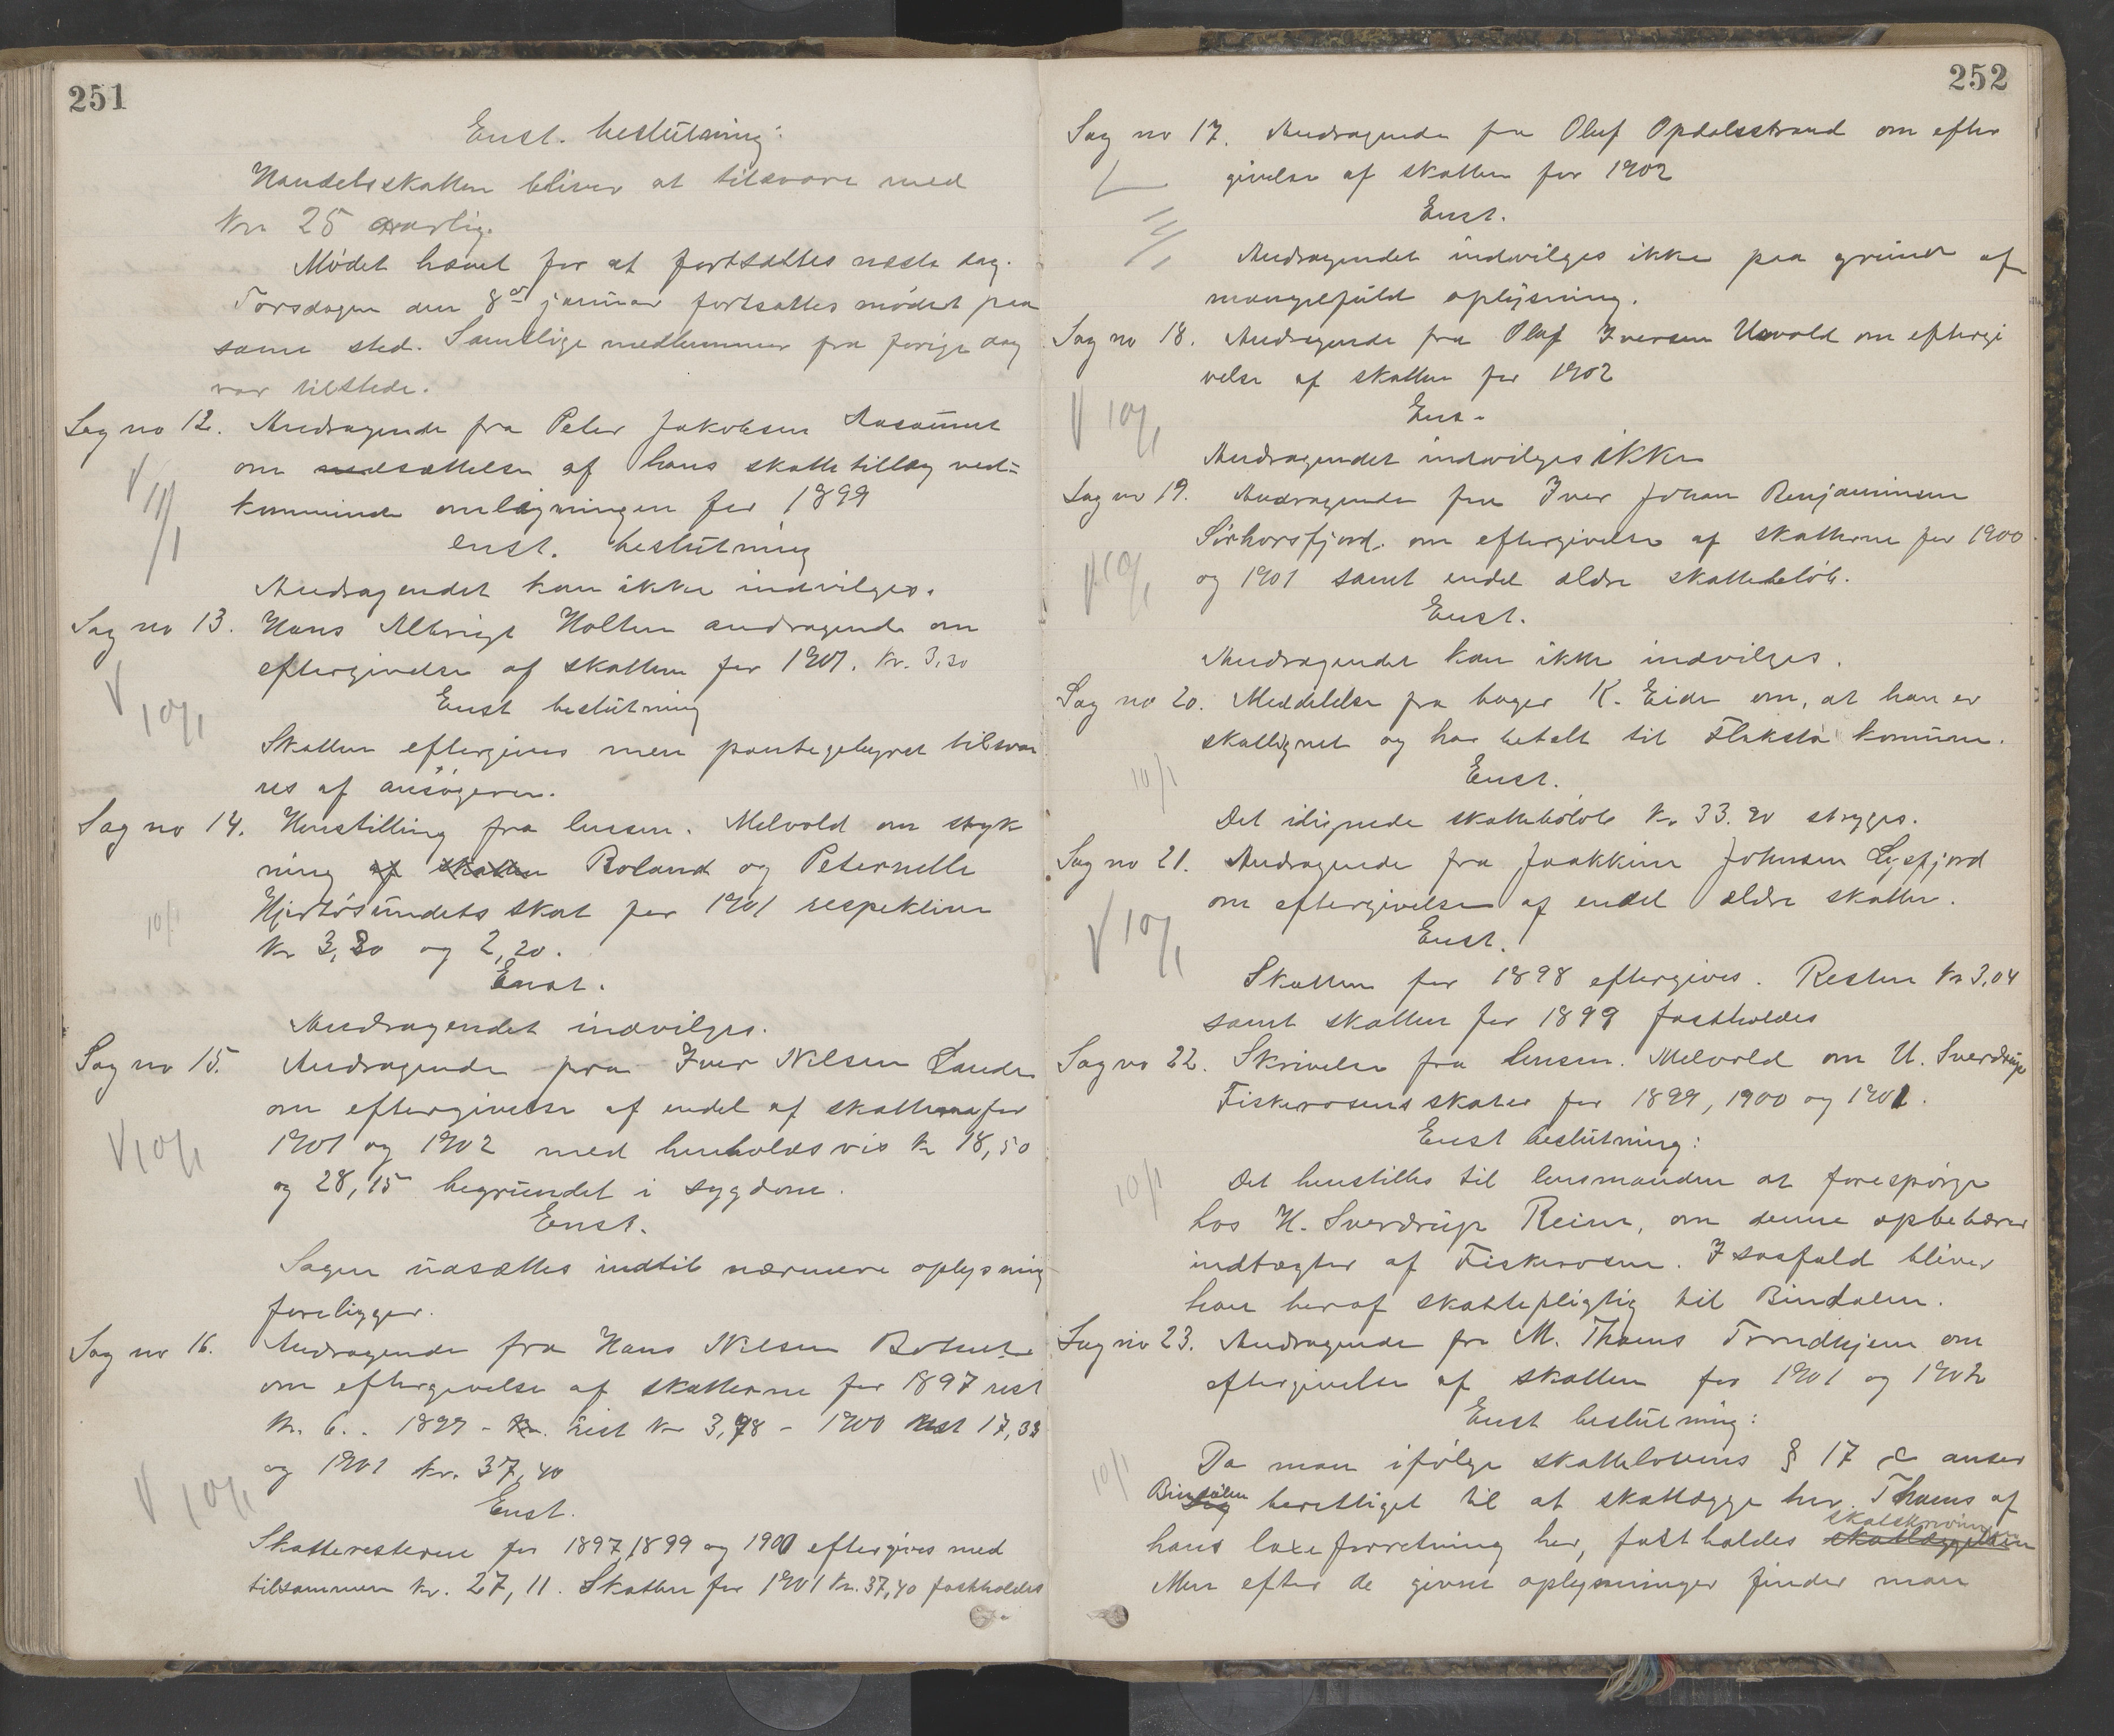 251
Enst. beslutning:
Handelsskatten bliver at tilsvare med
Kr 25 aarlig.
Mødet hævet for at fortsættes næste dag.
Torsdagen den 8de januar fortsattes mødet paa
same sted. Samtlige medlemmer fra forige dag
var tilstede.
Sag no 12. Andragende fra Peter Jakobsen
om nedsættelse af hans skattetillæg ved-
kommende omligningen for 1899
V 11/1
enst. beslutning
Andragendet kan ikke indvilges.
Sag no 13. Hans Albrigt Holten andragende om
eftergivelse af skatten for 1901. Kr. 3,30
V 10/1
Enst beslutning
Skatten eftergives men pantegebyret tilsva
res af ansøgeren.
Sag no 14. Henstilling fra lensm. Melvold om stryk
ning af skatten Roland og Peternelle
Hjortøsundets skat for 1901 respektive
10/1
Kr 3,30 og 2,20.
Enst.
Andragendet indvilges.
Sag no 15. Andragende fra Iver Nilsen Lande
om eftergivelse af endel af skatterne for
1901 og 1902 med henholdsvis Kr 18,50
V 10/1
og 28,15 begrundet i sygdom.
Enst.
Sagen udsættes indtil nærmere oplysning
foreligger.
Sag no 16. Andragende fra Hans Nilsen
om eftergivelse af skatterne for 1897 rest
Kr. 6.. 1899 - Kr. rest Kr 3,78 - 1900 rest 17,33
og 1901 kr. 37,40
V 10/1
Enst.
Skatteresterne for 1897, 1899 og 1900 eftergives med
tilsammen kr. 27,11. Skatten for 1901 Kr. 37,40 fastholdes
252
Sag no 17. Andragende fra Oluf Opdalsstrand om efter
givelse af skatten for 1902
Enst.
11/1
Andragendet indvilges ikke paa grund af
mangelfuld oplysning.
Sag no 18. Andragende fra Olaf Iversen Usvold om eftergi
velse af skatten for 1902
V 10/1
Enst.
Andragendet indvilges ikke
Sag no 19. Andragende fra Iver Johan Benjaminsen
Sørhorsfjord. om eftergivelse af skatterne for 1900
og 1901 samt endel ældre skattebeløb.
V 10/1
Enst.
Andragendet kan ikke indvilges.
Sag no 20. Meddelelse fra bager K. Eide om, at han er
skatlignet og har betalt til Flakstad komune.
10/1
Enst.
Det ilignede skattebeløb Kr 33.20 stryges.
Sag no 21. Andragende fra Joakkim Johnsen Lysfjord
om eftergivelse af endel ældre skatter.
V 10/1
Enst.
Skatten for 1898 eftergives. Resten Kr 3,04
samt skatten for 1899 fastholdes
Sag no 22. Skrivelse fra lensm. Melvold om U. Sverdrups
Fiskerosens skater for 1899, 1900 og 1901.
Enst beslutning:
10/1
Det henstilles til lensmanden at forespørge
hos H. Sverdrup Reine, om denne oppebærer
indtægter af Fiskerosen. I saafald bliver
han heraf skattepligtig til Bindalen.
Sag no 23. Andragende fra M. Thams Trondhjem om
eftergivelse af skatten for 1901 og 1902
Enst beslutning:
10/1
Da man ifølge skattelovens § 17 c anser
Bindalen sig berettiget til at skatlægge hr. Thams af
hans laxeforretning her, fastholdes skatlæggelsen skatskrivningen
Men efter de givne oplysninger finder man